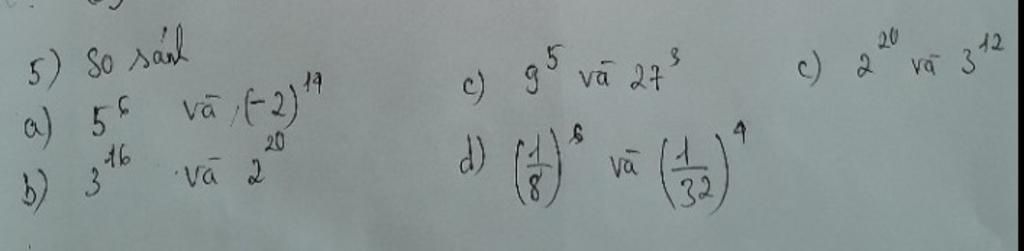 5) So sánh
a) 5⁶ và (-2)¹⁴
b) 3¹⁶ và 2²⁰
c) 9⁵ và 27³
d) (1/8)⁶ và (1/32)⁴
c) 2²⁰ và 3¹²